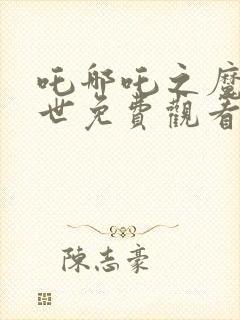 吒哪吒之魔
世免費觀看
陳志豪